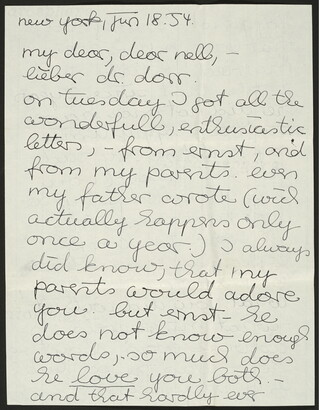 new york, jun 18. 54.
my dear, dear nell, –
lieber dr. dorr.
on tuesday I got all the
wonderfull, enthusiastic
letters, – from ernst, and
from my parents. even
my father wrote (wich
actually happens only
once a year.) I always
did know, that my
parents would adore
you. but ernst – he
does not know enough
words, – so much does
he love you both. –
and that hardly ever